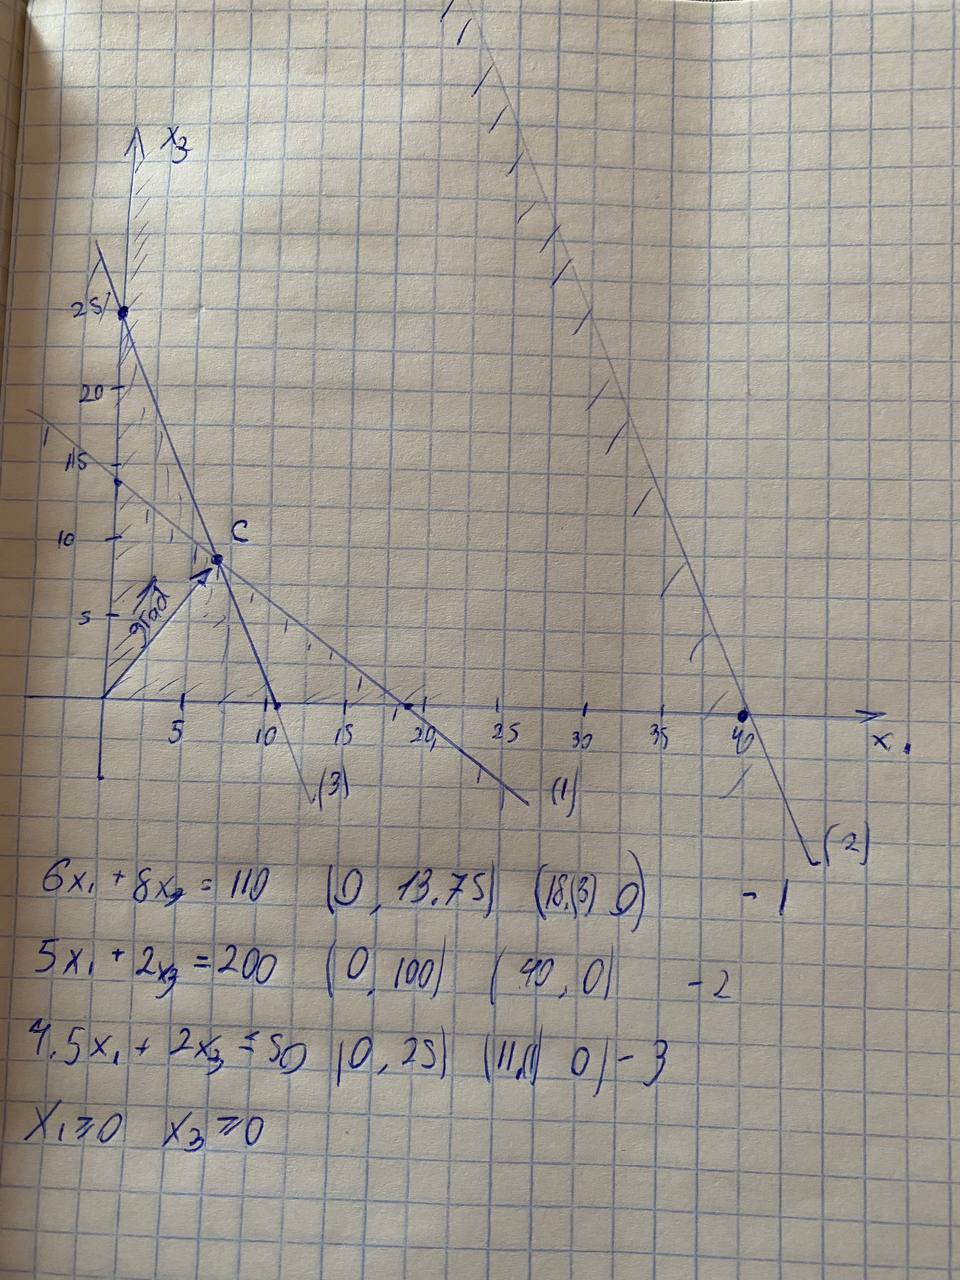 x₃
25
20
15
10
5
C
grad
5 10 15 20 25 30 35 40
x₁
(3) (1) (2)
6x₁ + 8x₃ = 110 (0, 13.75) (18,(3) 0) - 1
5x₁ + 2x₃ = 200 (0, 100) (40, 0) - 2
4.5x₁ + 2x₃ = 50 (0, 25) (11,(1) 0) - 3
x₁ ≥ 0 x₃ ≥ 0